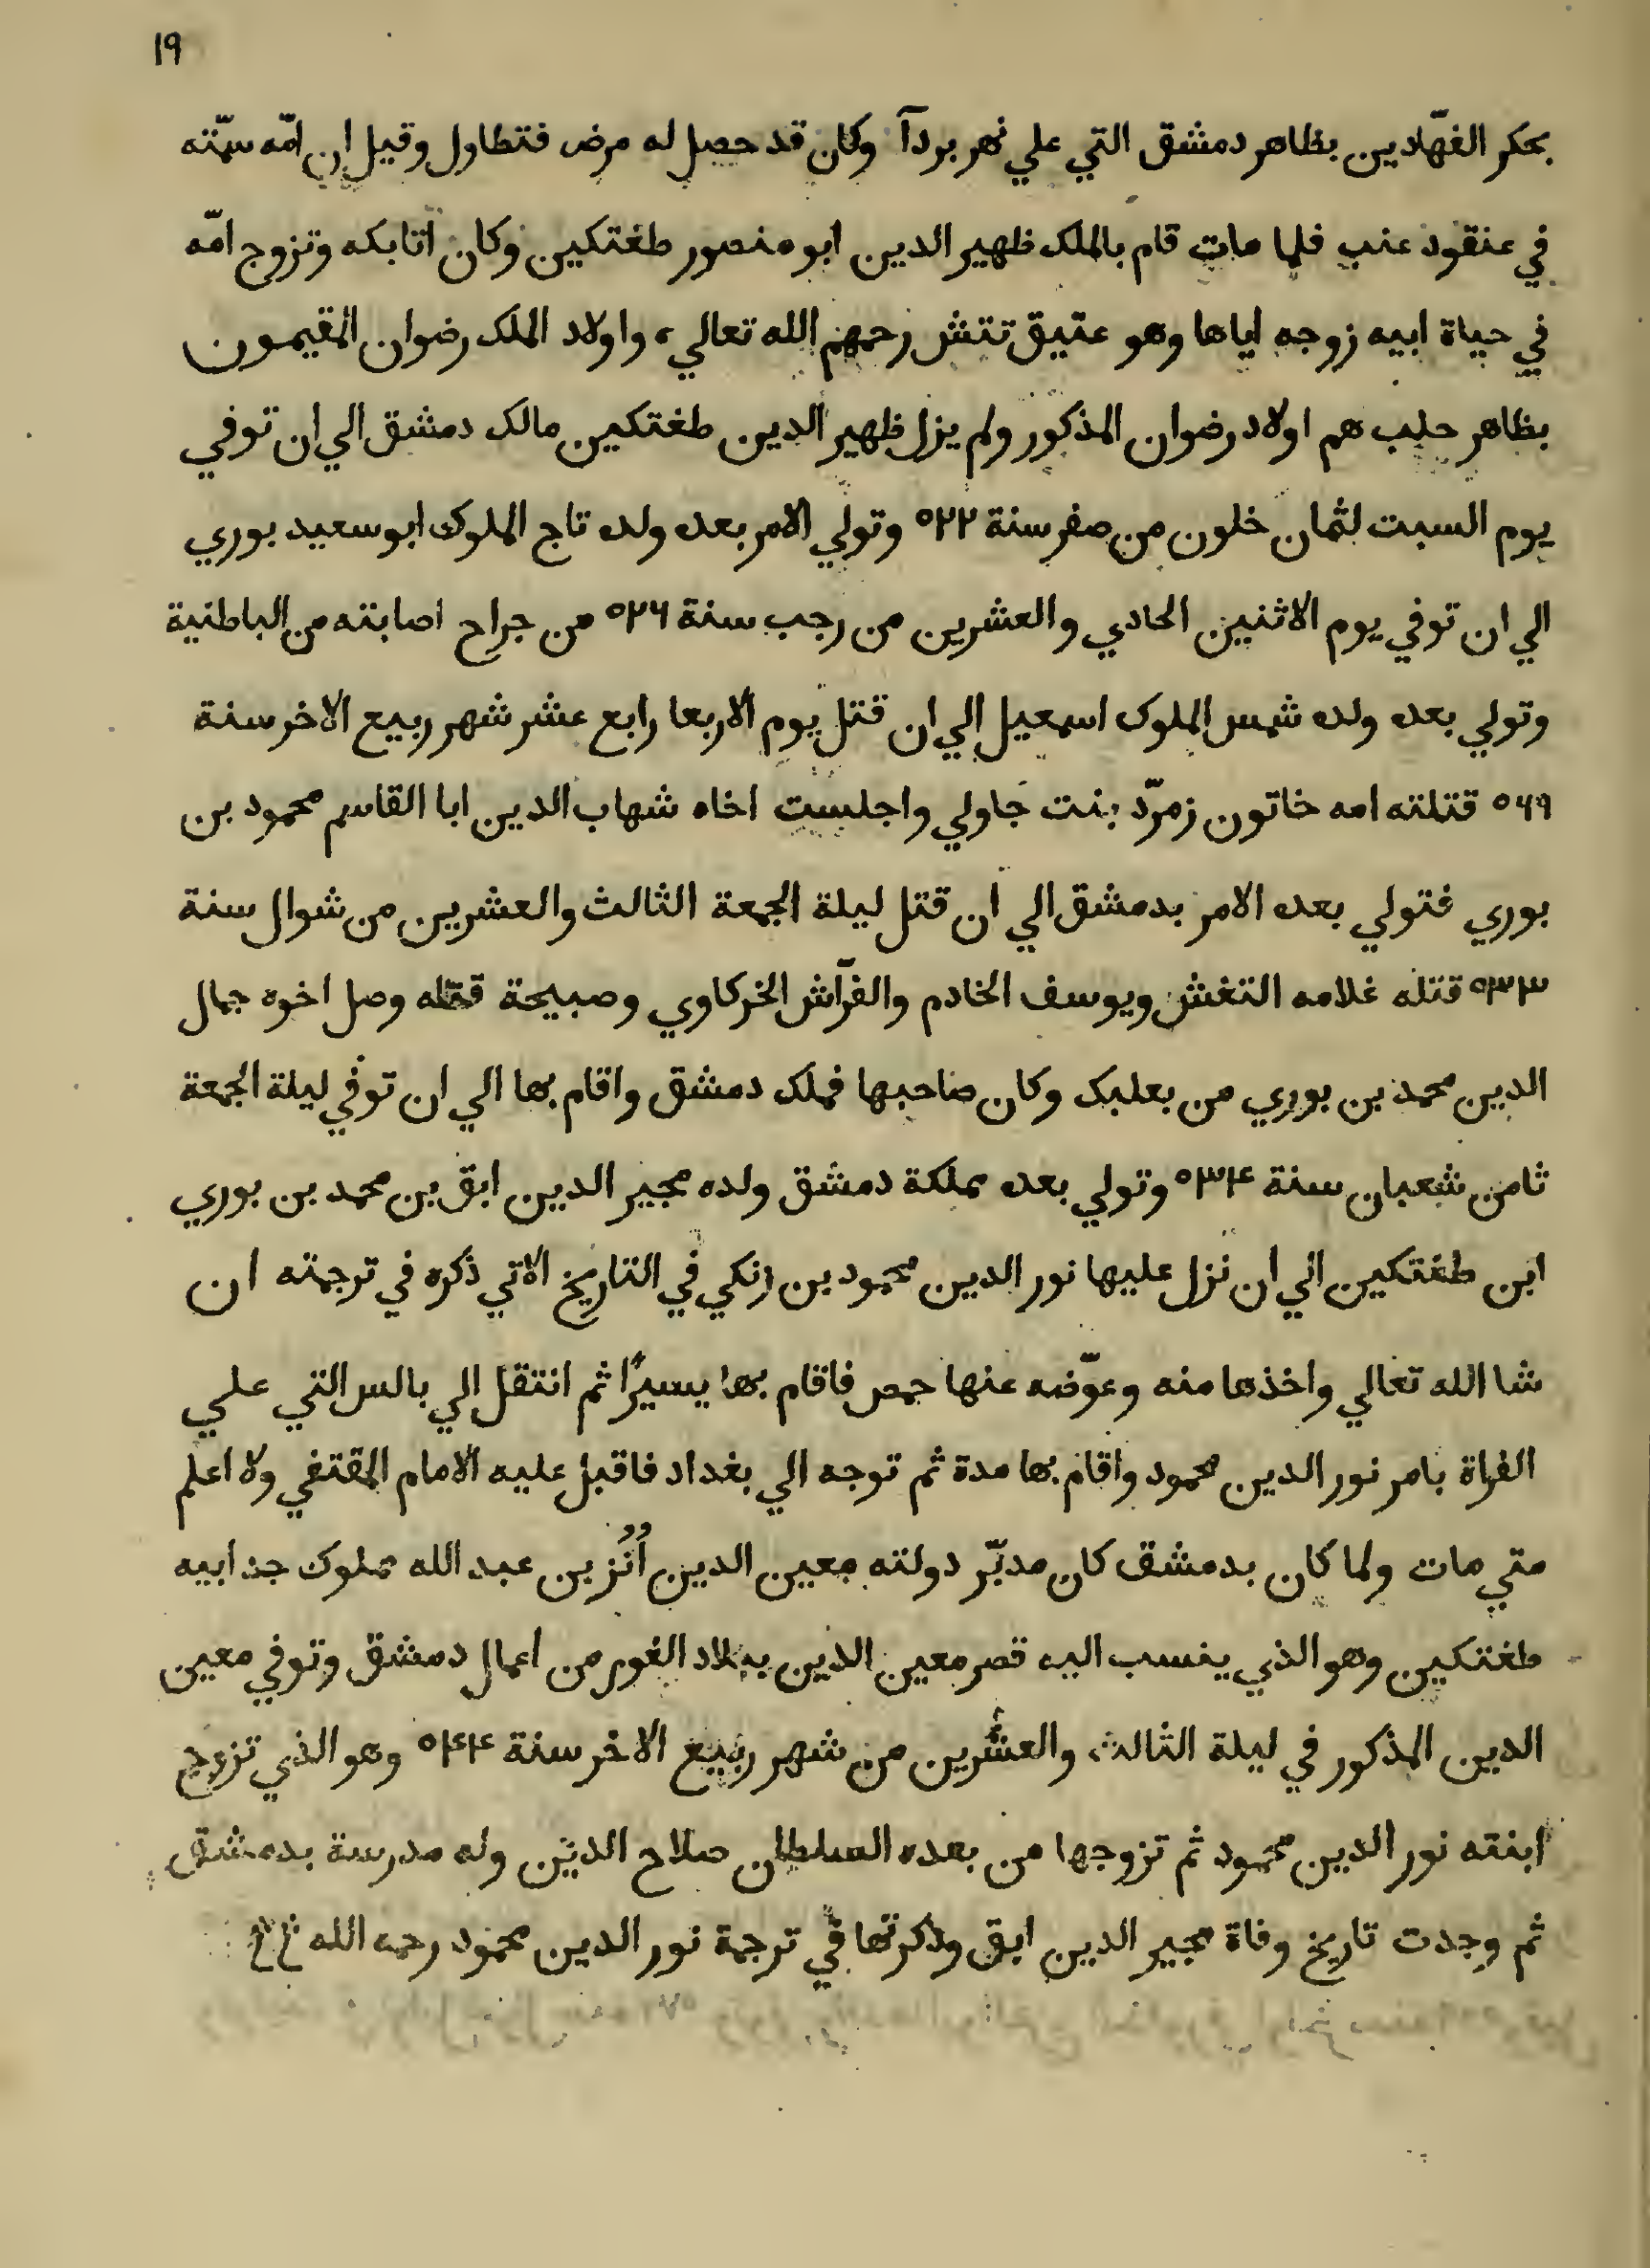 ١٩
بحكر الفهّادين بظاهر دمشق التي علي نهر بردآ وكان قد حصل له مرض فتطاول وقيل ان امّه سمّته
في عنقود عنب فلما مات قام بالملك ظهير الدين ابو منصور طغتكين وكان أتابكه وتزوج امّه
في حياة ابيه زوجه اياها وهو عتيق تتش رحمهم الله تعالي، واولاد الملك رضوان المقيمون
بظاهر حلب هم اولاد رضوان المذكور ولم يزل ظهير الدين طغتكين مالك دمشق الي ان توفي
يوم السبت لثمان خلون من صفر سنة ٥٢٢ وتولي الامر بعده ولده تاج الملوك ابو سعيد بوري
الي ان توفي يوم الاثنين الحادي والعشرين من رجب سنة ٥٢٦ من جراح اصابته من الباطنية
وتولي بعده ولده شمس الملوك اسمعيل الي ان قتل يوم الاربعا رابع عشر شهر ربيع الاخر سنة
٥٢٩ قتلته امه خاتون زمرّد بنت جاولي واجلست اخاه شهاب الدين ابا القاسم محمود بن
بوري فتولي بعده الامر بدمشق الي ان قتل ليلة الجمعة الثالث والعشرين من شوال سنة
٥٣٣ قتله غلامه التغش ويوسف الخادم والفرّاش الخركاوي وصبيحة قتله وصل اخوه جمال
الدين محمد بن بوري من بعلبك وكان صاحبها فملك دمشق واقام بها الي ان توفي ليلة الجمعة
ثامن شعبان سنة ٥٣٤ وتولي بعده مملكة دمشق ولده مجير الدين ابق بن محمد بن بوري
ابن طغتكين الي ان نزل عليها نور الدين محمود بن زنكي في التاريخ الاتي ذكره في ترجمته ان
شا الله تعالي واخذها منه وعوّضه عنها حمص فاقام بها يسيرًا ثم انتقل الي بالس التي علي
الفراة بامر نور الدين محمود واقام بها مدة ثم توجه الي بغداد فاقبل عليه الامام المقتفي ولا اعلم
متي مات ولما كان بدمشق كان مدبّر دولته معين الدين أُنُز بن عبد الله مملوك جد ابيه
طغتكين وهو الذي ينسب اليه قصر معين الدين ببلاد الغور من اعمال دمشق وتوفي معين
الدين المذكور في ليلة الثالث والعشرين من شهر ربيع الاخر سنة ٥٤٤ وهو الذي تزوج
ابنته نور الدين محمود ثم تزوجها من بعده السلطان صلاح الدين وله مدرسة بدمشق
ثم وجدت تاريخ وفاة مجير الدين ابق وذكرتها في ترجمة نور الدين محمود رحمه الله